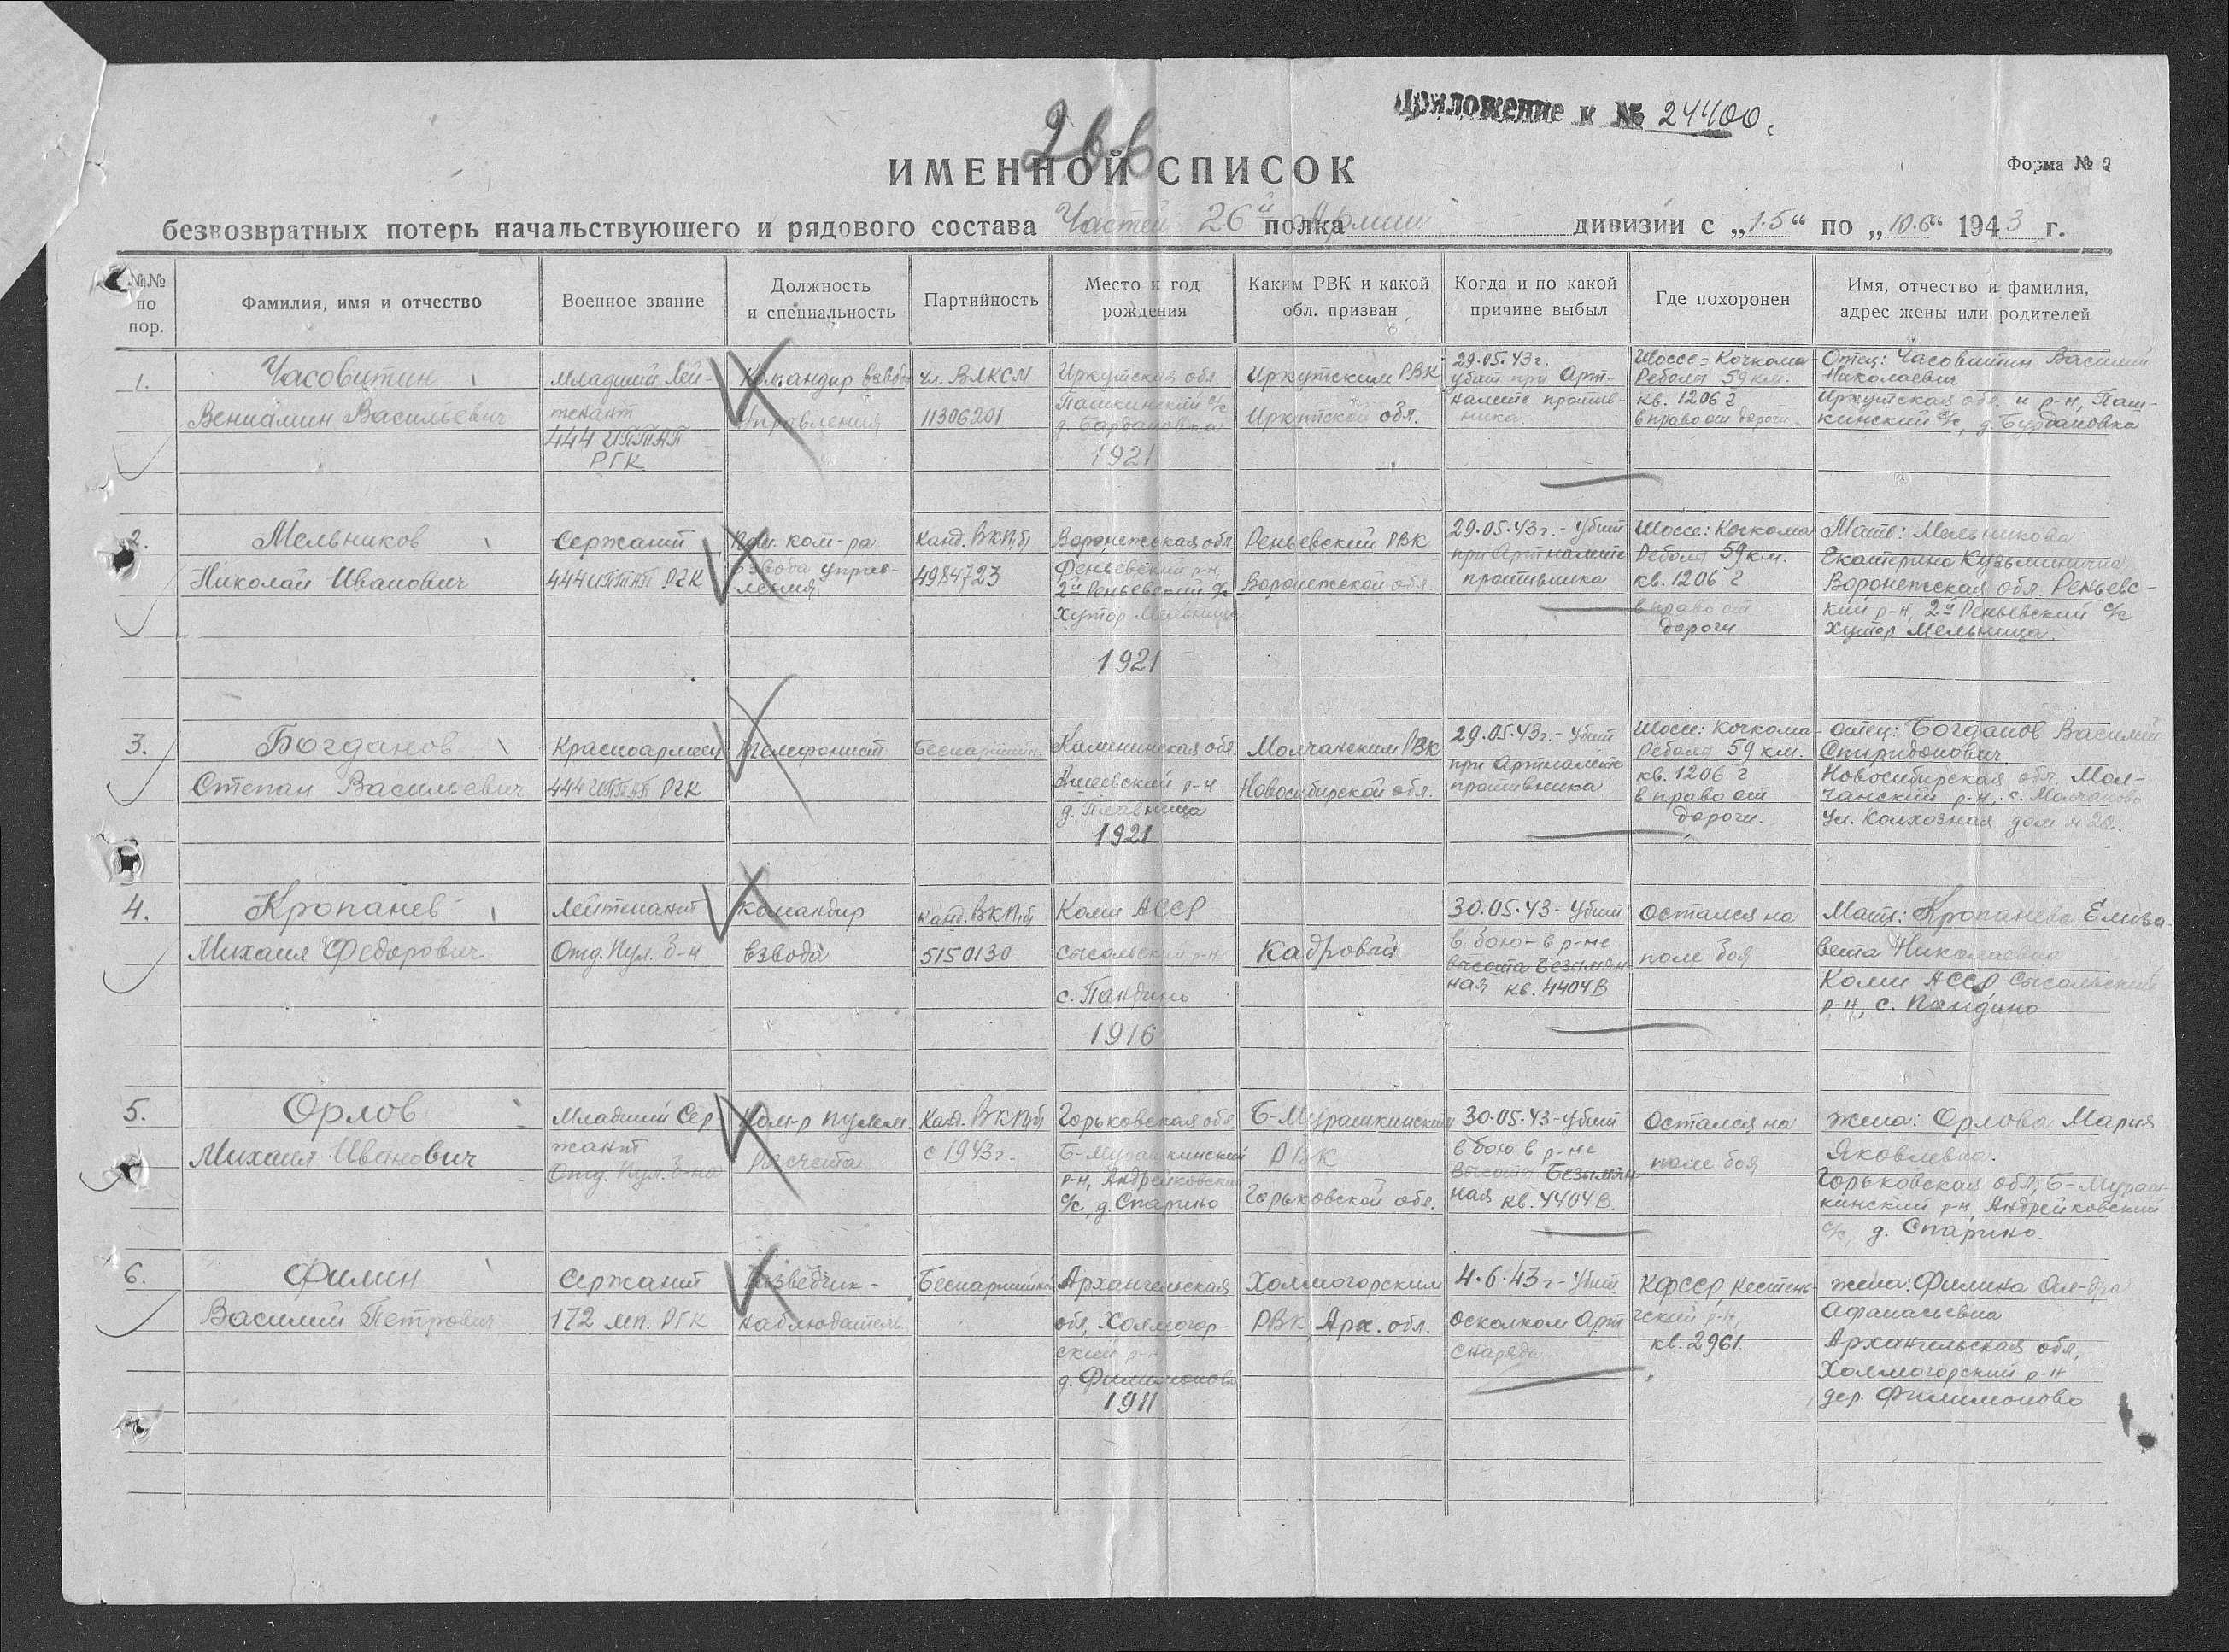 Приложение к № 24400.
266
ИМЕННОЙ СПИСОК
Форма № 2
безвозвратных потерь начальствующего и рядового состава Частей 26й Армии полка дивизии с „1.5“ по „10.6“ 1943 г.
№№ по пор.
Фамилия, имя и отчество
Военное звание
Должность и специальность
Партийность
Место и год рождения
Каким РВК и какой обл. призван
Когда и по какой причине выбыл
Где похоронен
Имя, отчество и фамилия, адрес жены или родителей
1.
Часовитин
Вениамин Васильевич
Младший Лей-
тенант
444 ИПТАП
РГК
Командир взвода
Управления
чл. ВЛКСМ
11306201
Иркутская обл.
Пашкинский с/с
д. Бардановка
1921
Иркутским РВК
Иркутской обл.
29.05.43г.
убит при Арт-
налете против-
ника.
Шоссе-Кочкома-
Реболы 59 км.
кв. 1206 г
вправо от дороги
Отец: Часовитин Василий
Николаевич
Иркутская обл. и р-н, Паш-
кинский с/с, д. Бурдаковка
2.
Мельников
Николай Иванович
Сержант
444 ИПТАП РГК
Пом. ком-ра
взвода управ-
ления
Канд. ВКП/б
4984723
Воронежская обл.
Реньевский р-н
2й Реньевский с/с
Хутор Мельница
1921
Реньевский РВК
Воронежской обл.
29.05.43г. - убит
при Артналете
противника
Шоссе: Кочкома
Реболы 59 км.
кв. 1206 г
вправо от
дороги
Мать: Мельникова
Екатерина Кузьминична
Воронежская обл. Реньевс-
кий р-н, 2й Реньевский с/с
Хутор Мельница.
3.
Богданов
Степан Васильевич
Красноармеец
444 ИПТАП РГК
Телефонист
Беспартийн.
Калининская обл.
р-н
д. Плавница
1921
Молчанским РВК
Новосибирской обл.
29.05.43г. - убит
при Артналете
противника
Шоссе: Кочкома-
Реболы 59 км.
кв. 1206 г
вправо от
дороги.
Отец: Богданов Василий
Спиридонович.
Новосибирская обл. Мол-
чанский р-н, с. Молчаново
ул. Колхозная дом № 20.
4.
Кропанев
Михаил Федорович
Лейтенант
Отд. Пул. б-н
Командир
взвода
Канд. ВКП/б
5150130
Коми АССР
Сысольский р-н
с. Пандино
1916
Кадровый
30.05.43 - убит
в бою - в р-не
высота Безымян-
ная кв. 4404В
Остался на
поле боя
Мать: Кропанева Елиза-
вета Николаевна
Коми АССР Сысольский
р-н, с. Пандино
5.
Орлов
Михаил Иванович
Младший Сер-
жант
Отд. Пул. б-на
Ком-р пулем.
Расчета
Канд. ВКП/б
с 1943г.
Горьковская обл.
Б-Мурашкинский
р-н, Андрейковский
с/с, д. Спарино
Б-Мурашкинским
РВК
Горьковской обл.
30.05.43 - убит
в бою в р-не
высоты Безымян-
ная кв. 4404В.
Остался на
поле боя
Жена: Орлова Мария
Яковлевна.
Горьковская обл, Б-Мураш-
кинский р-н Андрейковский
с/с, д. Спарино.
6.
Филин
Василий Петрович
Сержант
172 мп. РГК
Разведчик-
наблюдатель
Беспартийный
Архангельская
обл, Холмогор-
ский р-н
д. Филимоново
1911
Холмогорским
РВК, Арх. обл.
4.6.43г - убит
осколком Арт
снаряда
КФССР, Кестень-
гский р-н,
кв. 2961
Жена: Филина Ал-дра
Афанасьевна
Архангельская обл,
Холмогорский р-н
дер. Филимоново